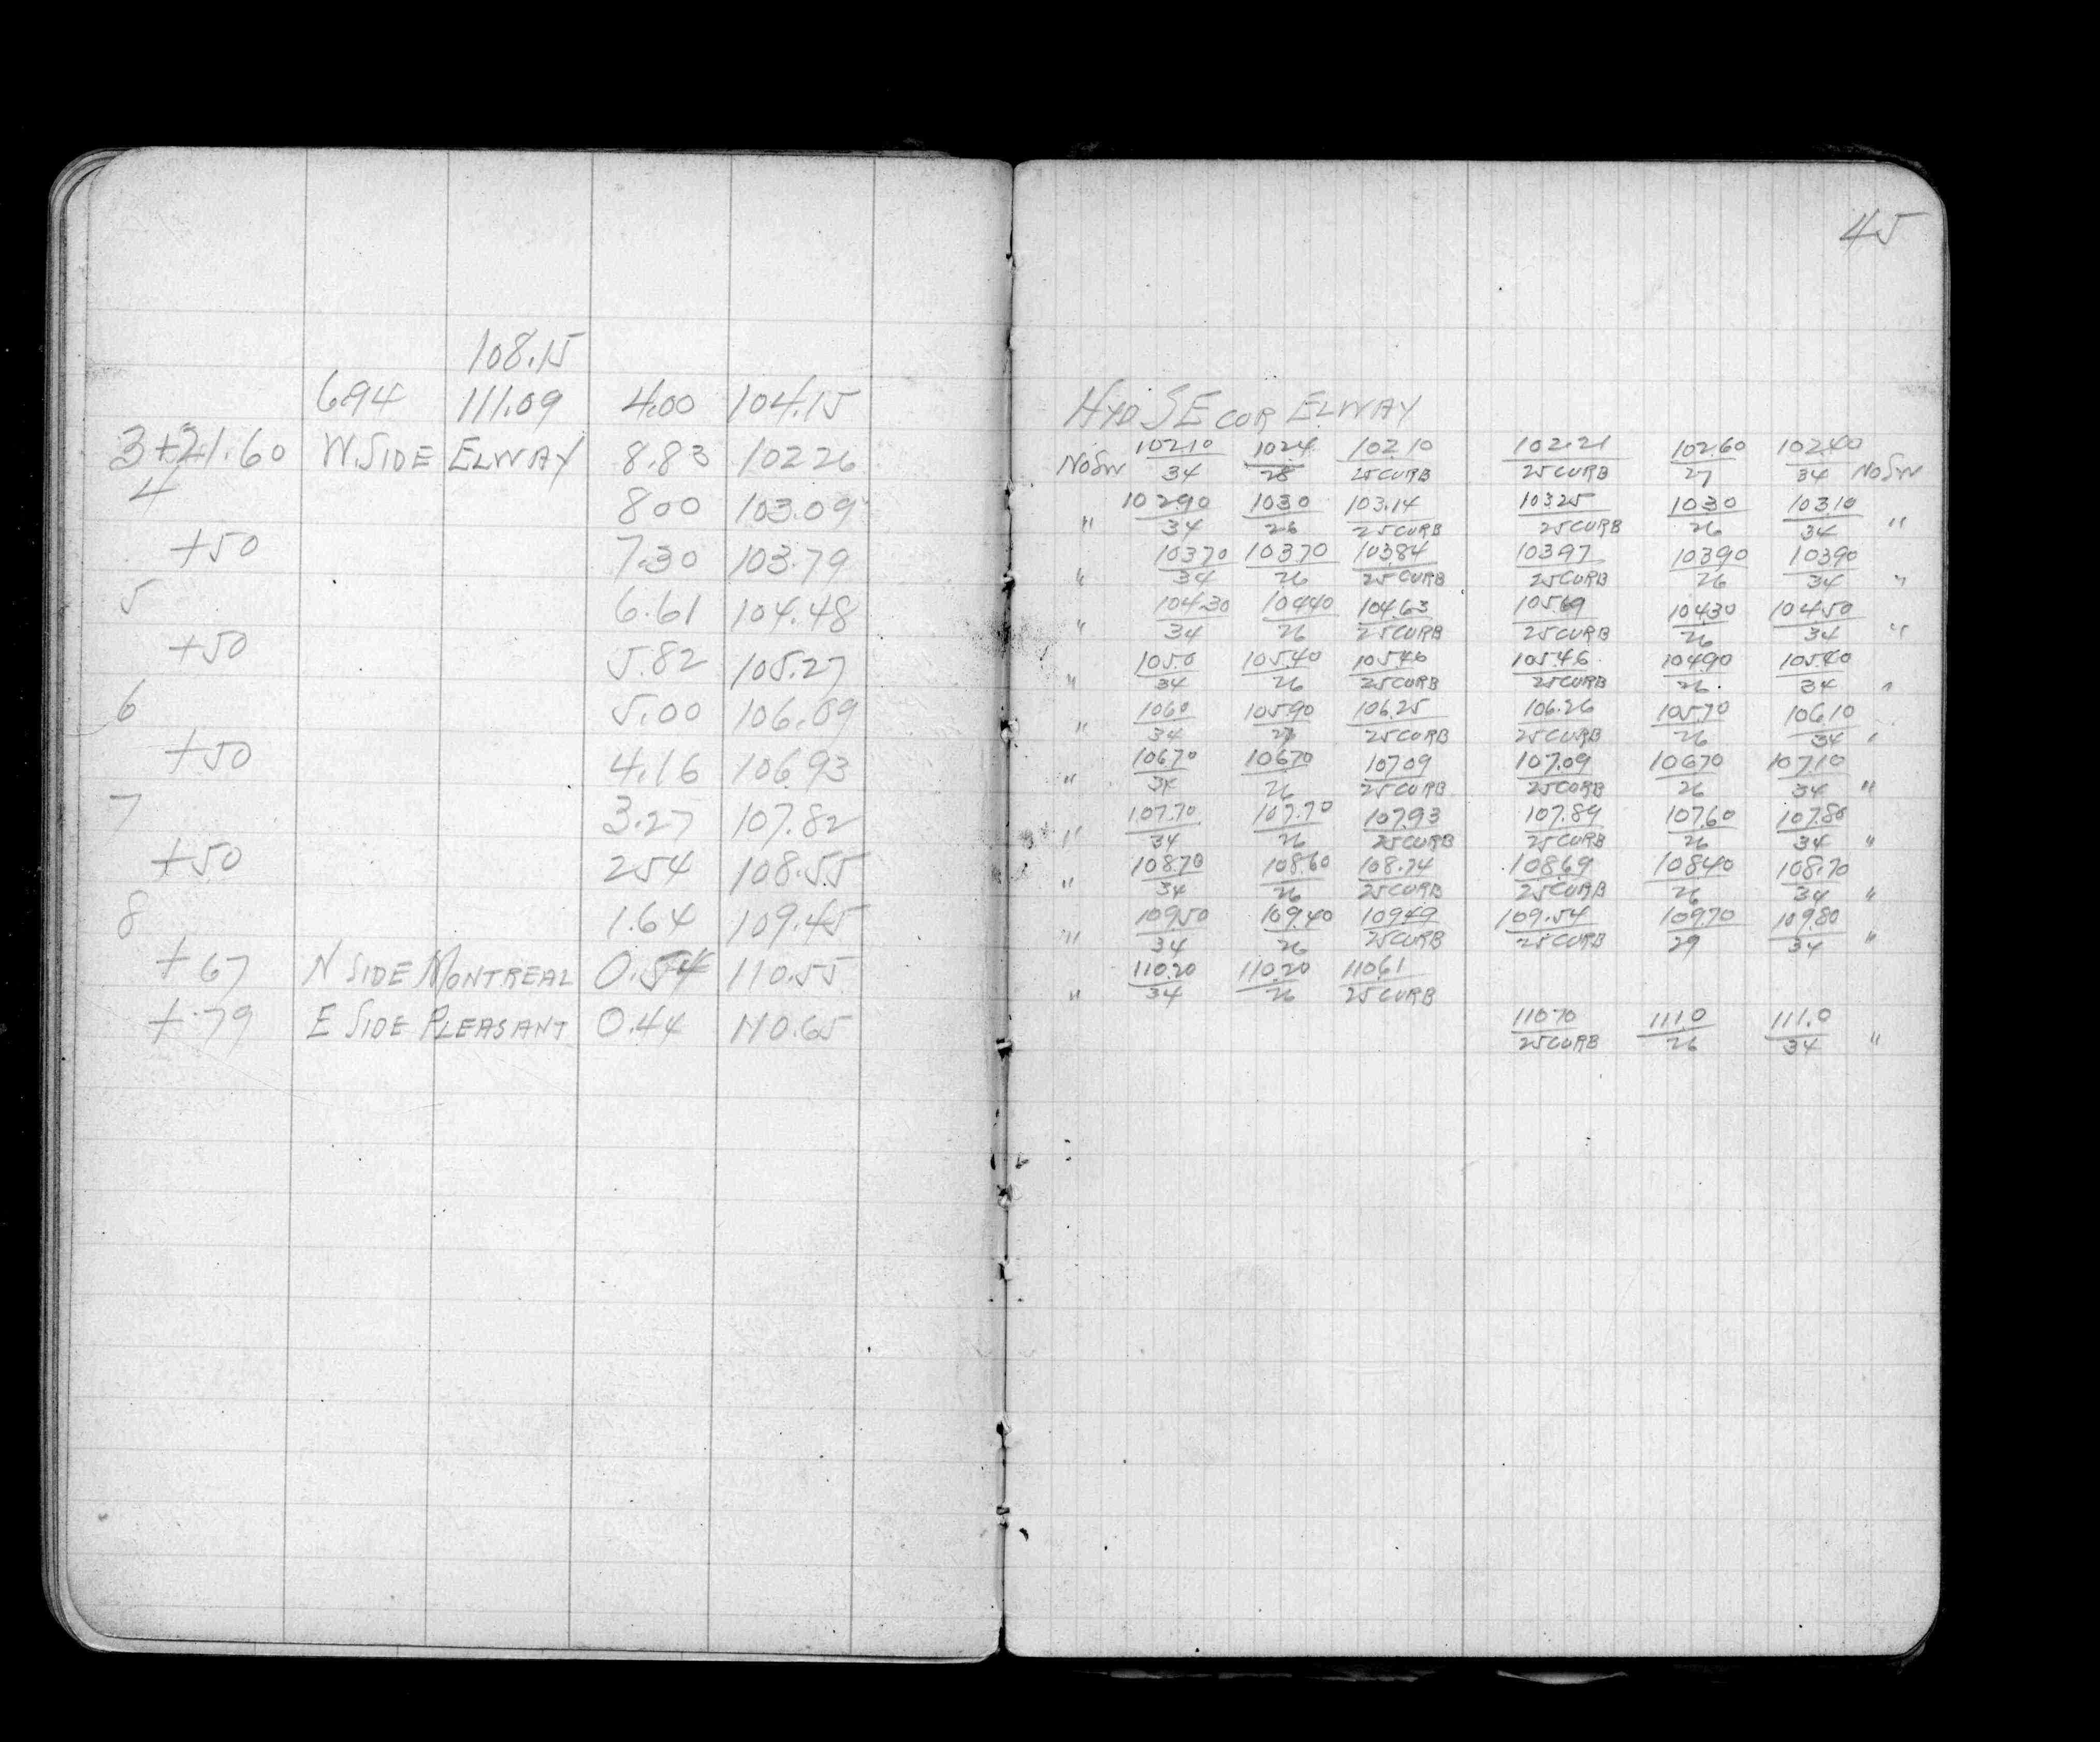 45
108.15
6.94 111.09 4.00 104.15 HYD SE COR ELWAY
3+21.60 W. SIDE ELWAY 8.83 102.26 NO SW 102.10/34 102.4/28 102.10/25 CURB 102.21/25 CURB 102.60/27 102.40/34 NO SW
4 8.00 103.09 " 102.90/34 103.0/26 103.14/25 CURB 103.25/25 CURB 103.0/26 103.10/34 "
+50 7.30 103.79 " 103.70/34 103.70/26 103.84/25 CURB 103.97/25 CURB 103.90/26 103.90/34 "
5 6.61 104.48 " 104.30/34 104.40/26 104.63/25 CURB 25 CURB 104.30/26 104.50/34 "
+50 5.82 105.27 " 105.0/34 105.40/26 105.46/25 CURB 105.46/25 CURB 104.90/26 105.40/34 "
6 5.00 106.09 " 106.0/34 105.90/26 106.25/25 CURB 106.26/25 CURB 105.70/26 106.10/34 "
+50 4.16 106.93 " 106.70/34 106.70/26 107.09/25 CURB 107.09/25 CURB 106.70/26 107.10/34 "
7 3.27 107.82 " 107.70/34 107.70/26 107.93/25 CURB 107.89/25 CURB 107.60/26 107.80/34 "
+50 2.54 108.55 " 108.70/34 108.60/26 108.74/25 CURB 108.69/25 CURB 108.40/26 108.70/34 "
8 1.64 109.45 " 109.50/34 109.40/26 109.49/25 CURB 109.54/25 CURB 109.70/29 109.80/34 "
+67 N SIDE MONTREAL 0.54 110.55 " 110.20/34 110.20/26 110.61/25 CURB
+79 E SIDE PLEASANT 0.44 110.65 110.70/25 CURB 111.0/26 111.0/34 "